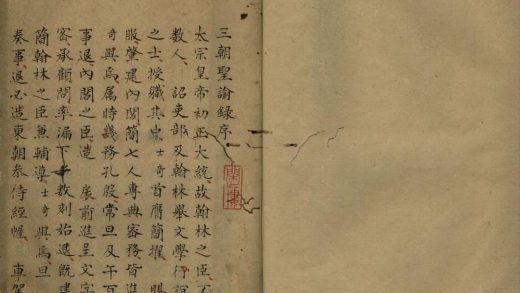 三朝聖諭錄序
太宗皇帝初正大統故翰林之臣不
數人 詔吏部及翰林舉文學行誼
之士授職其 士奇首膺簡擢 賜
服肇建內閣簡七人專典密務皆進
奇與焉屬時幾務孔殷常旦及午百
事退內閣之臣造 扆前進呈文字
密承顧問率漏下 數刻始退旣建
簡翰林之臣兼輔導士奇與焉旦
奏事退必造東朝叅侍經幄 車駕